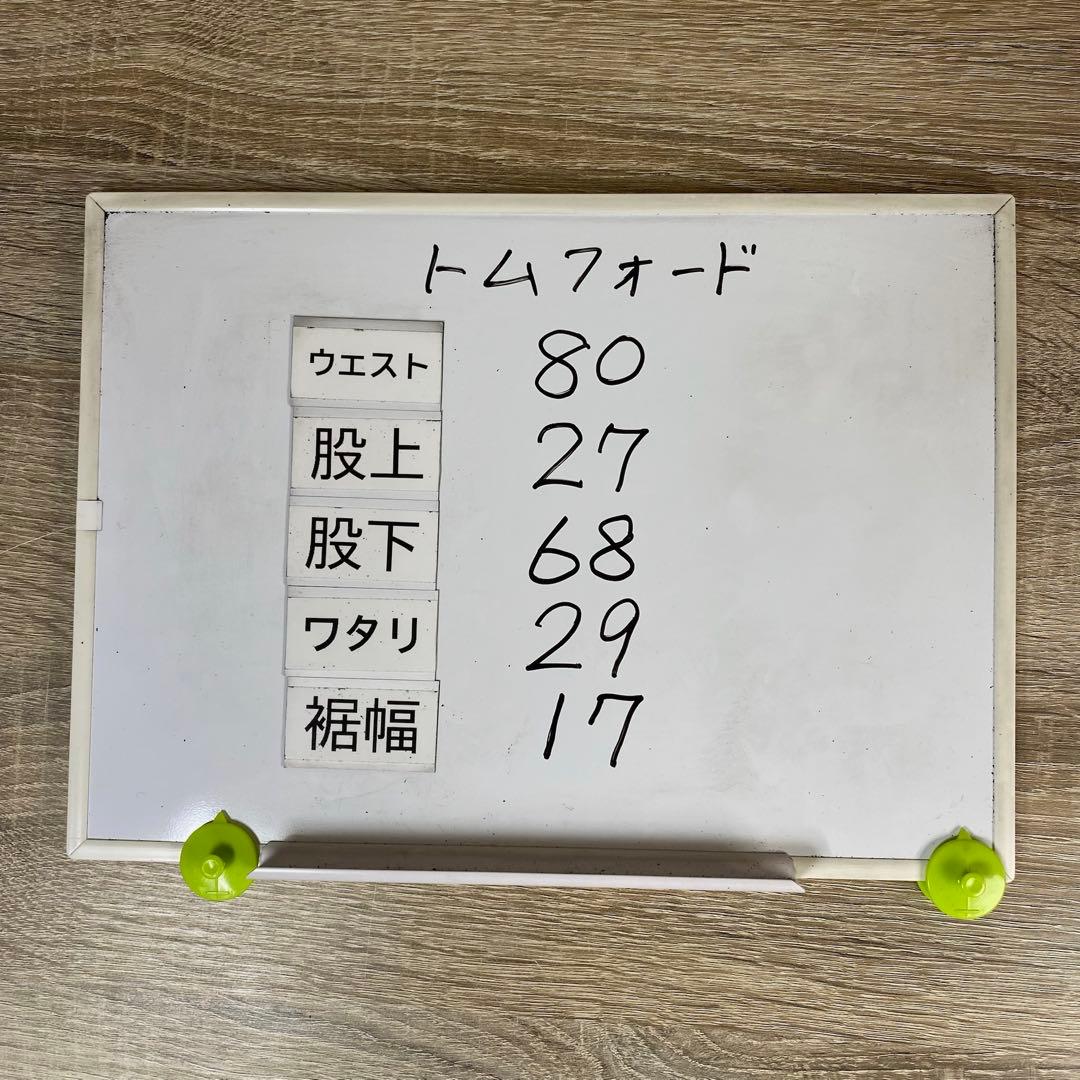 トムフォード
ウエスト 80
股上 27
股下 68
ワタリ 29
裾幅 17